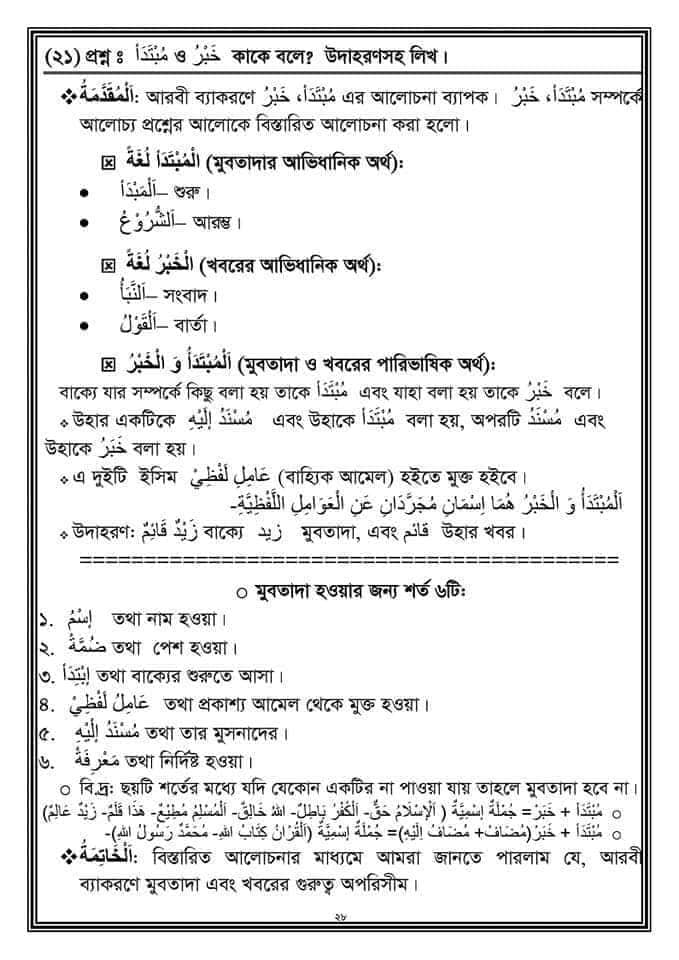 (২১) প্রশ্ন ঃ مُبْتَدَأ ও خَبْرُ কাকে বলে? উদাহরণসহ লিখ।
❖اَلْمُقَدَّمَةُ: আরবী ব্যাকরণে مُبْتَدَأ، خَبْرُ এর আলোচনা ব্যাপক। مُبْتَدَأ، خَبْرُ সম্পর্কে
আলোচ্য প্রশ্নের আলোকে বিস্তারিত আলোচনা করা হলো।
☒ الْمُبْتَدَأ لُغَةً (মুবতাদার আভিধানিক অর্থ):
● اَلْمَبْدَأ– শুরু।
● اَلشُّرُوْعُ– আরম্ভ।
☒ الْخَبْرُ لُغَةً (খবরের আভিধানিক অর্থ):
● اَلنَّبَأُ– সংবাদ।
● اَلْقَوْلُ– বার্তা।
☒ اَلْمُبْتَدَأُ وَ الْخَبْرُ (মুবতাদা ও খবরের পারিভাষিক অর্থ):
বাক্যে যার সম্পর্কে কিছু বলা হয় তাকে مُبْتَدَأ এবং যাহা বলা হয় তাকে خَبْرُ বলে।
❖ উহার একটিকে مُسْنَدُ إلَيْهِ এবং উহাকে مُبْتَدَأ বলা হয়, অপরটি مُسْنَدُ এবং
উহাকে خَبَرُ বলা হয়।
❖ এ দুইটি ইসিম عَامِلِ لَفْظِيْ (বাহ্যিক আমেল) হইতে মুক্ত হইবে।
اَلْمُبْتَدَأُ وَ الْخَبْرُ هُمَا اِسْمَانِ مُجَرَّدَانِ عَنِ الْعَوَامِلِ اللَّفْظِيَّةِ-
❖ উদাহরণ: زَيْدٌ قَائِمٌ বাক্যে زيد মুবতাদা, এবং قائم উহার খবর।
==========================================
○ মুবতাদা হওয়ার জন্য শর্ত ৬টি:
১. اِسْمُ তথা নাম হওয়া।
২. ضُمَّةُ তথা পেশ হওয়া।
৩. اِبْتِدَأ তথা বাক্যের শুরুতে আসা।
৪. عَامِلُ لَفْظِيْ তথা প্রকাশ্য আমেল থেকে মুক্ত হওয়া।
৫. مُسْنَدُ إلَيْهِ তথা তার মুসনাদের।
৬. مَعْرِفَةُ তথা নির্দিষ্ট হওয়া।
○ বি.দ্র: ছয়টি শর্তের মধ্যে যদি যেকোন একটির না পাওয়া যায় তাহলে মুবতাদা হবে না।
○ مُبْتَدَأ + خَبَرْ= جُمْلَةُ إسْمِيَّةُ ( اَلْإسْلَامُ حَقٌّ- اَلْكُفْرُ بَاطِلٌ- اللهُ خَالِقٌ- اَلْمُسْلِمُ مُطِيْعٌ- هٰذَا قَلَمٌ- زَيْدٌ عَالِمٌ)
○ مُبْتَدَأ + خَبَرْ(مُضَافُ+ مُضَافُ إلَيْهِ)= جُمْلَةُ إسْمِيَّةُ (اَلْقُرْانُ كِتَابُ اللهِ- مُحَمَّدٌ رَسُوْلُ اللهِ)-
❖اَلْخَاتِمَةُ: বিস্তারিত আলোচনার মাধ্যমে আমরা জানতে পারলাম যে, আরবী
ব্যাকরণে মুবতাদা এবং খবরের গুরুত্ব অপরিসীম।
২৮